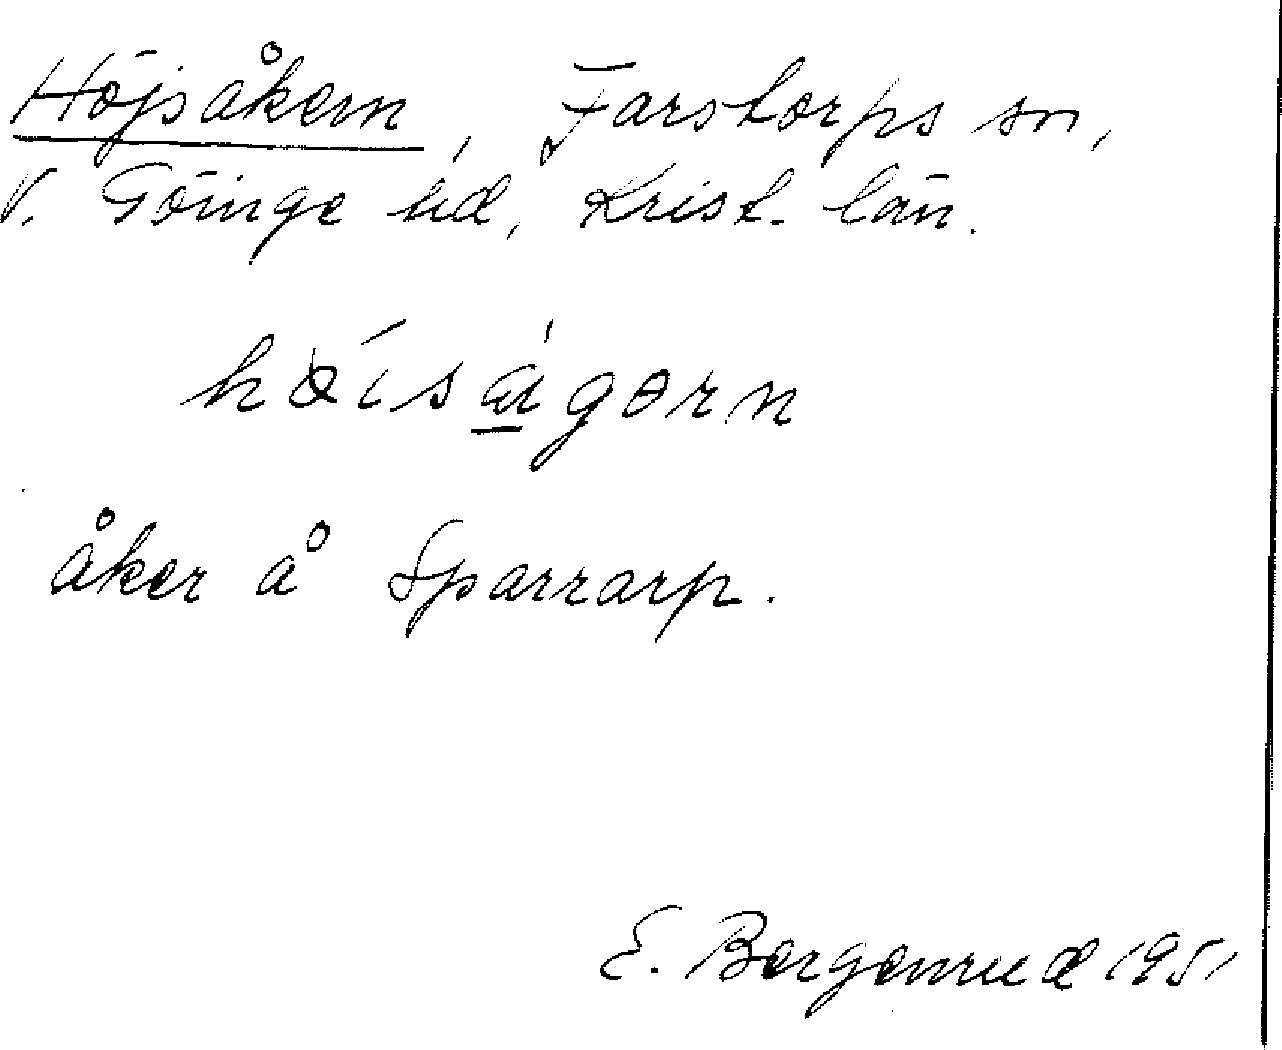 Höjsåkern, Farstorps sn,
V. Göinge hd, Krist. län.
åker å Sparrarp.
E. Bergenrud 1951